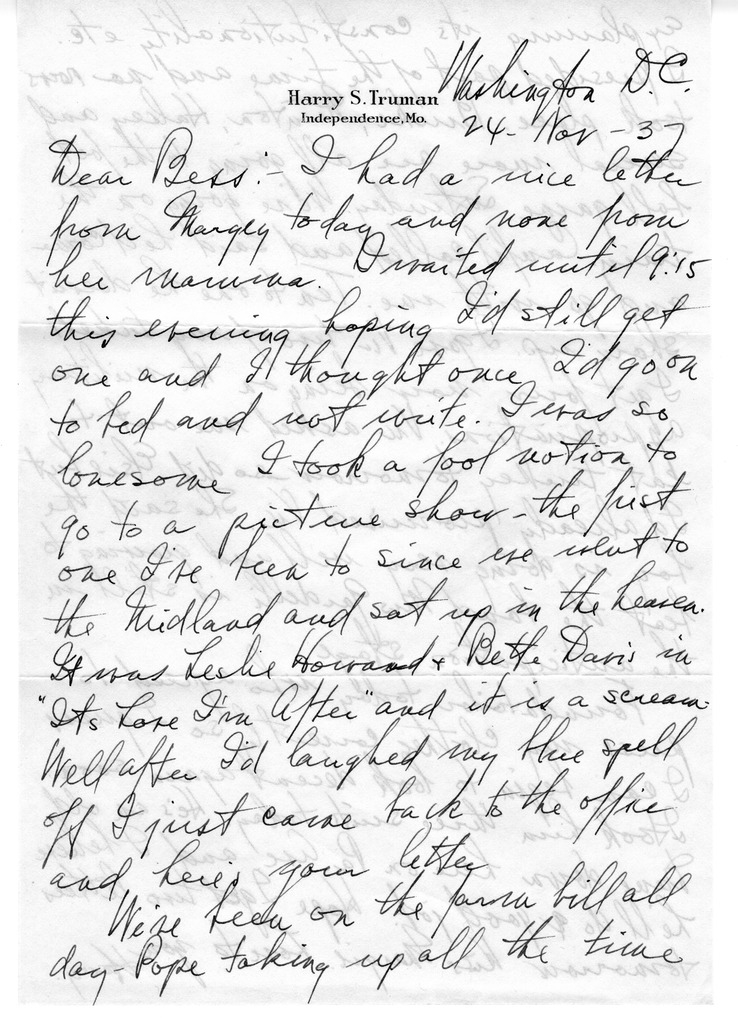 Harry S. Truman
Independence, Mo.
Washington D.C.
24 - Nov - 37
Dear Bess:- I had a nice letter
from Margey today and none from
her mamma. I waited until 9:15
this evening hoping I'd still get
one and I thought once I'd go on
to bed and not write. I was so
lonesome I took a fool notion to
go to a picture show - the first
one I've been to since we went to
the Midland and sat up in the heaven.
It was Leslie Howard & Bette Davis in
"Its Love I'm After" and it is a scream.
Well after I'd laughed my blue spell
off I just came back to the office
and here's your letter
We've been on the farm bill all
day - Pope taking up all the time